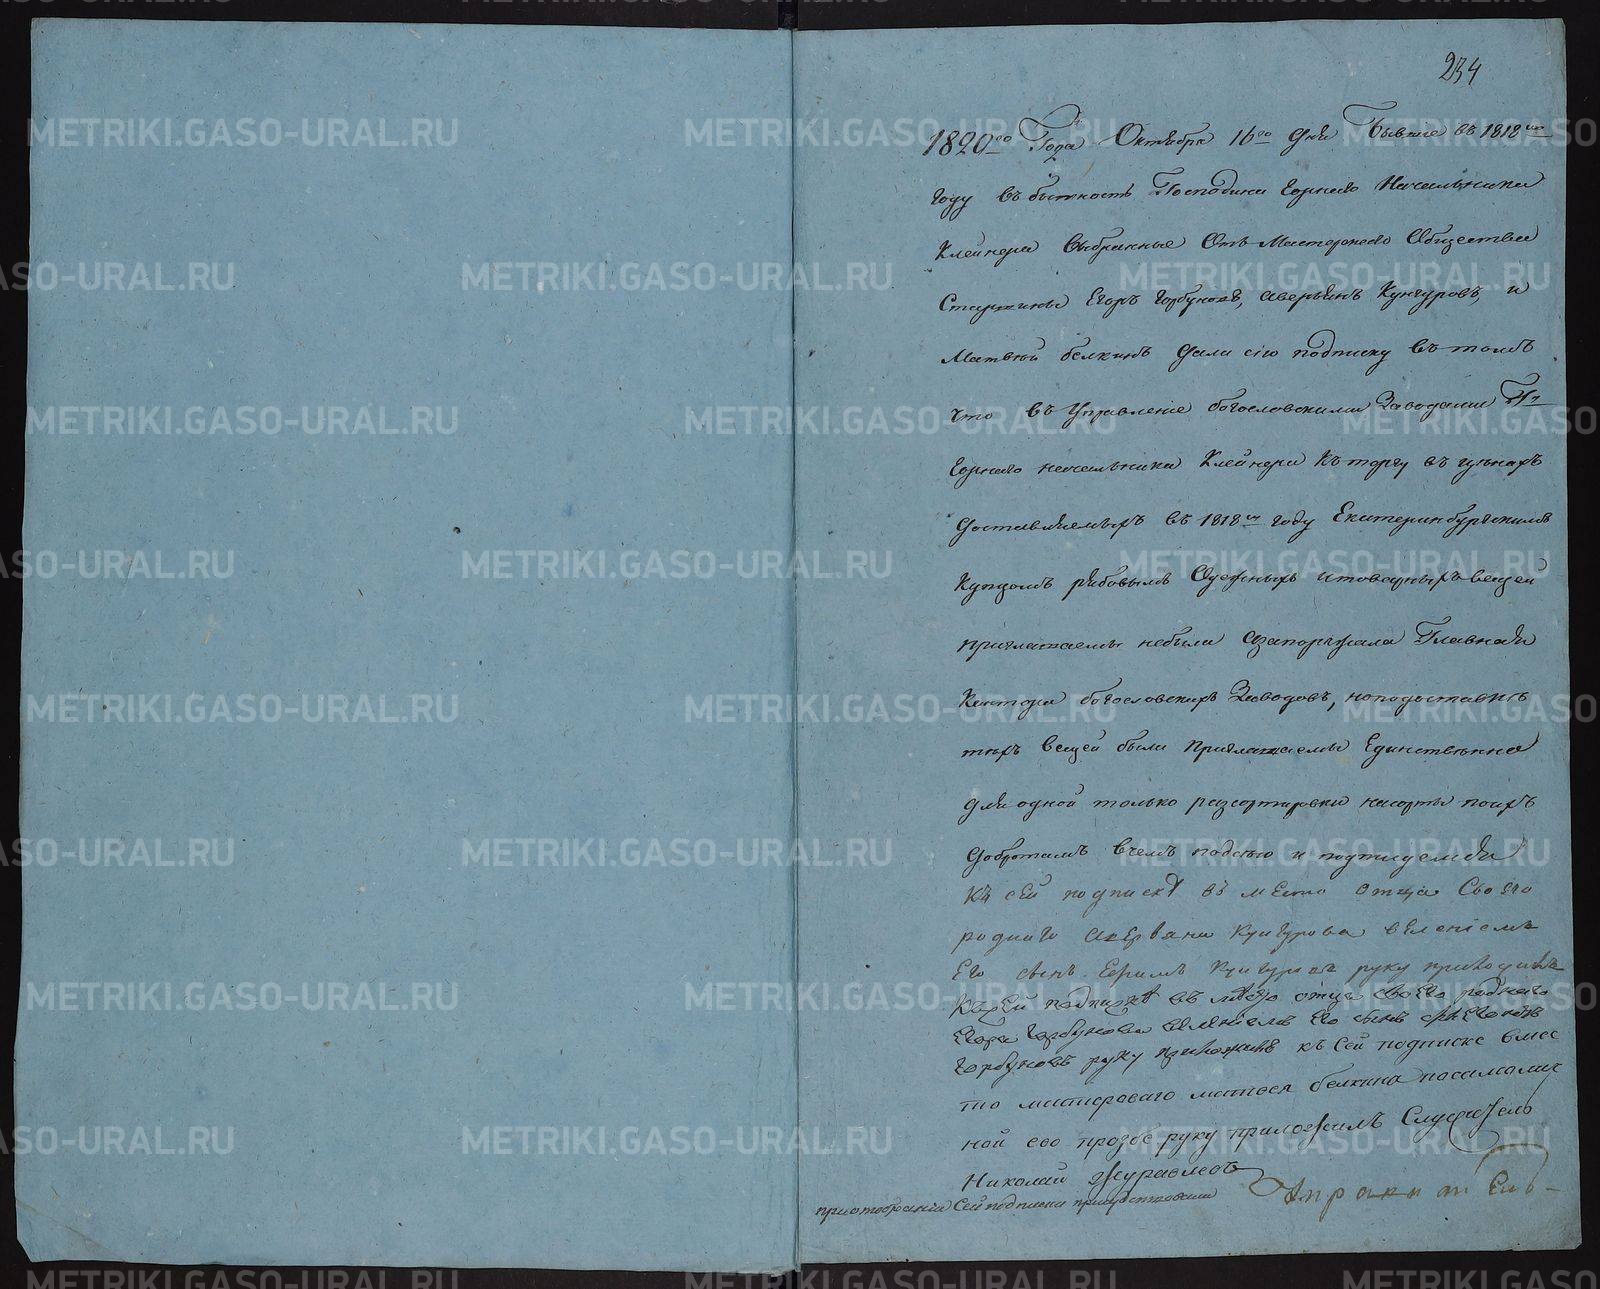 234
1820го Года Октября 16го дня Бывшие въ 1818мъ
году въ бытность Господина Горнаго Начальника
Клейнера выбранные Отъ Мастерскаго Общества
Старшины Егоръ Горбуновъ, Аверьянъ Кунгуровъ, и
Матвей белкинъ дали сiю подписку въ томъ
что въ Управленiе богословскими Заводами Гна
Горнаго начальника Клейнера Къ торгу въ ценахъ
доставляемыхъ въ 1818мъ году Екатеринбургскимъ
Купцомъ рябовымъ Одежныхъ и товарныхъ вещей
приглашаемы небыли Главная
Кантора богословскихъ Заводовъ, но подоставкъ
техъ вещей были приглашаемы Единственно
для одной только разсортировки насорты поихъ
добротамъ вчемъ подсею и подписуемся
Къ сей подпискъ въ место отца Своего
роднаго Аверяна Кунгурова веленiемъ
Его сынъ Ефимъ Кунгуровъ руку приложилъ
Къ сей подпискъ въ место отца своего роднаго
Егора Горбунова веленiемъ Его сынъ
Горбуновъ руку приложилъ къ Сей подписке вмес
то мастероваго матвея белкина посамолич
ной его прозбе руку приложилъ Служитель
Николай Журавлевъ
приотобранiи Сей подписки присудствовали
METRIKI.GASO-URAL.RU